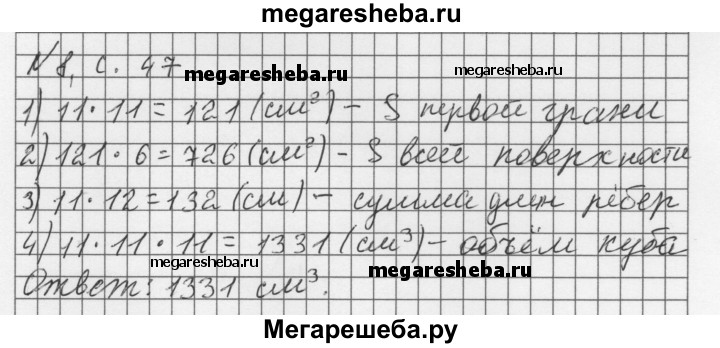 megaresheba.ru
N 8, с. 47
megaresheba.ru megaresheba.ru
1) 11·11=121 (см²) – S первой грани
2) 121·6=726 (см²) – S всей поверхности
3) 11·12=132 (см) – сумма длин рёбер
4) 11·11·11=1331 (см³) – объём куба
megaresheba.ru megaresheba.ru
Ответ: 1331 см³.
Мегарешеба.ру